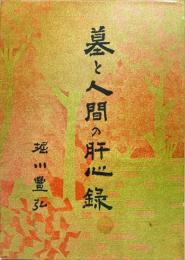 墓と人間の肝心録
堀川豊弘